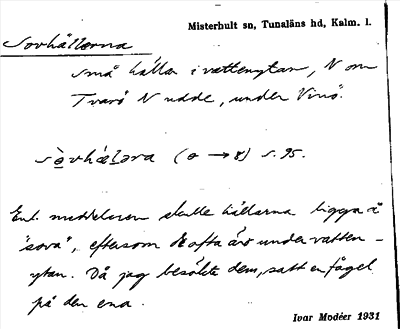 Misterhult sn, Tunaläns hd, Kalm. l.
Sovhällorna
små hällor i vattenytan, N om
Tvarö N udde, under Vinö.
s. 95.
Enl. meddelaren skulle hällarna ligga å
"sova", eftersom de ofta äro under vatten-
ytan. Då jag besökte dem, satt en fågel
på den ena.
Ivar Modéer 1931